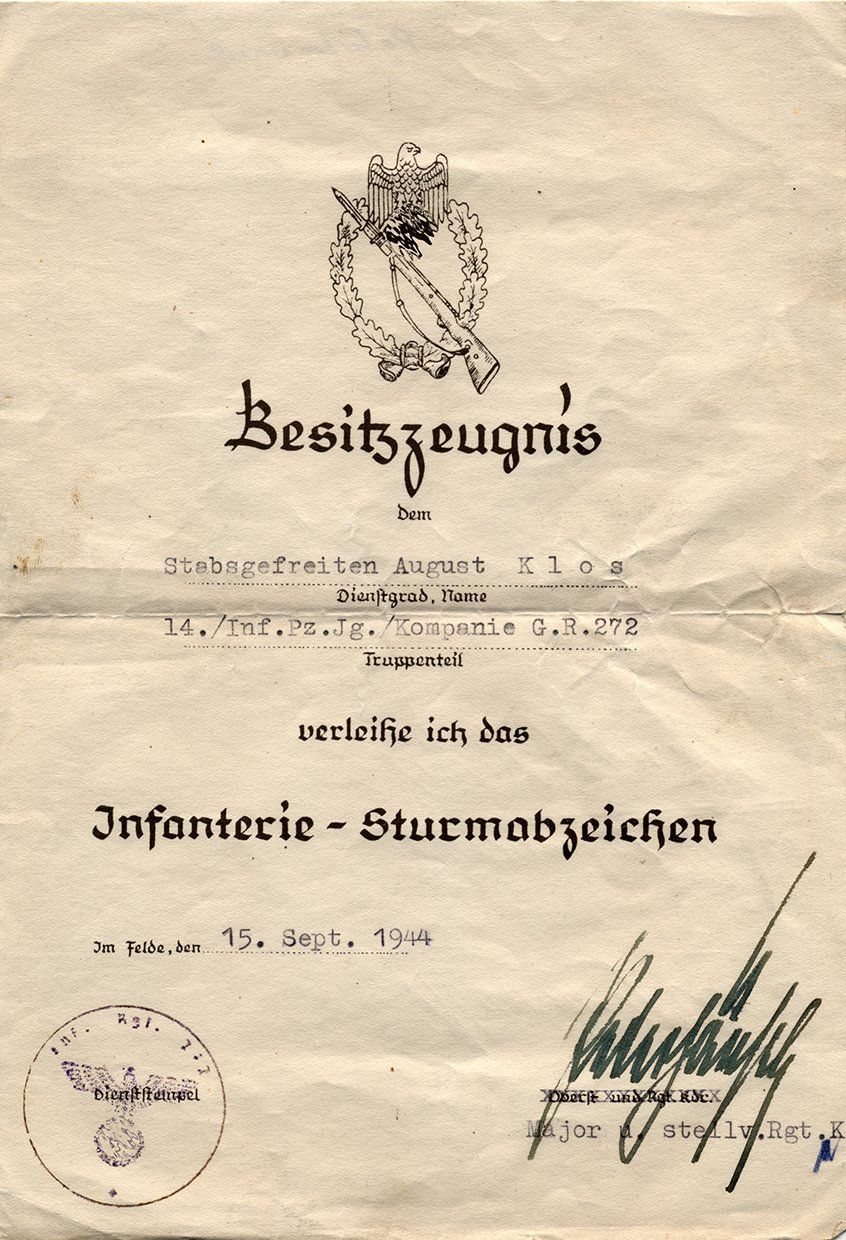 Besitzzeugnis
dem
Stabsgefreiten August K l o s
Dienstgrad, Name
14./Inf.Pz.Jg./Kompanie G.R.272
Truppenteil
verleihe ich das
Infanterie - Sturmabzeichen
Im Felde, den 15. Sept. 1944
Inf. Rgt.
Dienststempel
Oberst und Rgt. Kdr.
Major u. stellv.Rgt.K